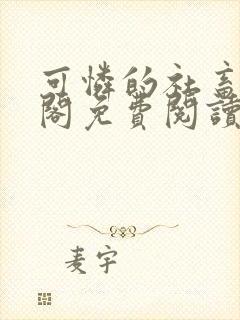 可憐的社畜
閣免費閱讀
麦宇